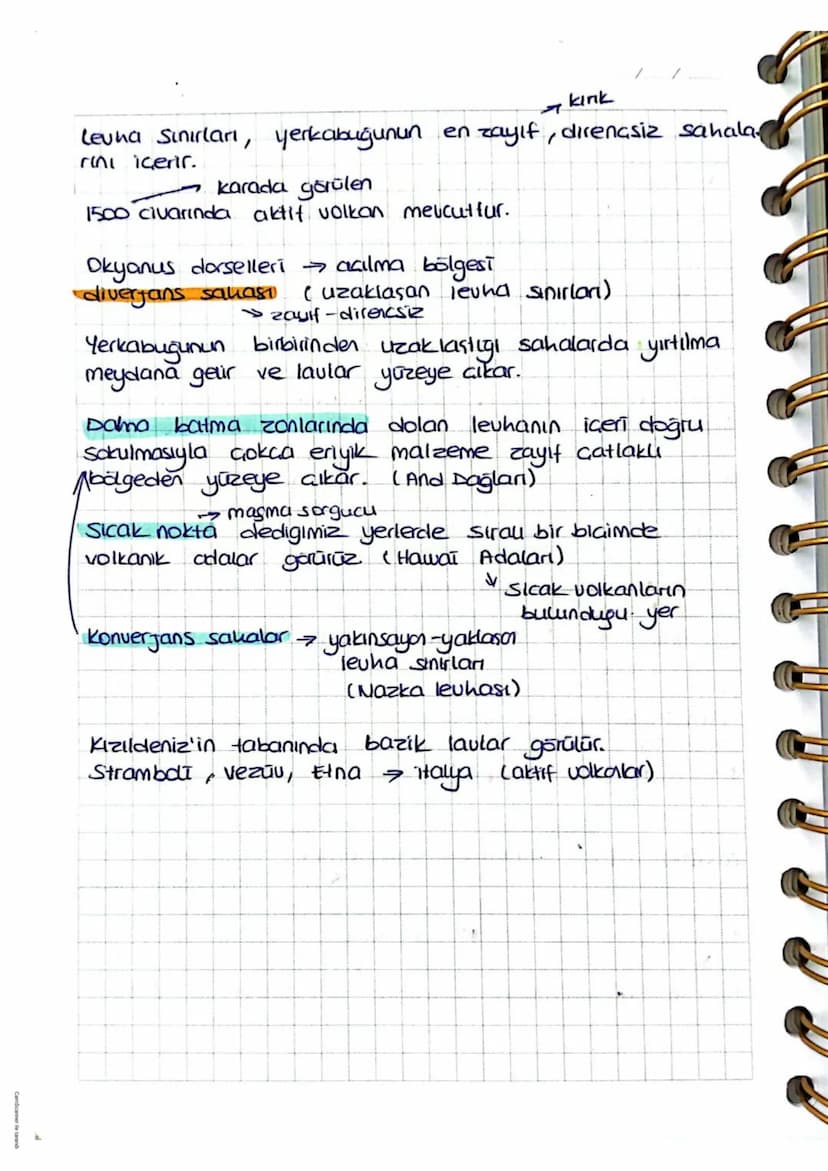 / /
→ kırık
Levha sınırları, yerkabuğunun en zayıf, dirençsiz sahala-
rını içerir.
→ karada görülen
1500 civarında aktif volkan mevcuttur.
Okyanus dorselleri → açılma bölgesi
diverjans sahası (uzaklaşan levha sınırları)
→ zayıf-dirençsiz
Yerkabuğunun birbirinden uzaklaştığı sahalarda yırtılma
meydana gelir ve lavlar yüzeye çıkar.
Dalma batma zonlarında dalan levhanın içeri doğru
sokulmasıyla çokca eriyik malzeme zayıf çatlaklı
bölgeden yüzeye çıkar. (And Dağları)
→ magma sorgucu
Sıcak nokta dediğimiz yerlerde sıralı bir biçimde
volkanik adalar görürüz (Hawaī Adaları)
↓ Sıcak volkanların
bulunduğu yer
Konverjans sahalar → yakınsayan-yaklaşan
levha sınırları
(Nazka levhası)
Kızıldeniz'in tabanında bazik lavlar görülür.
Stramboli, Vezüv, Etna → italya (aktif volkanlar)